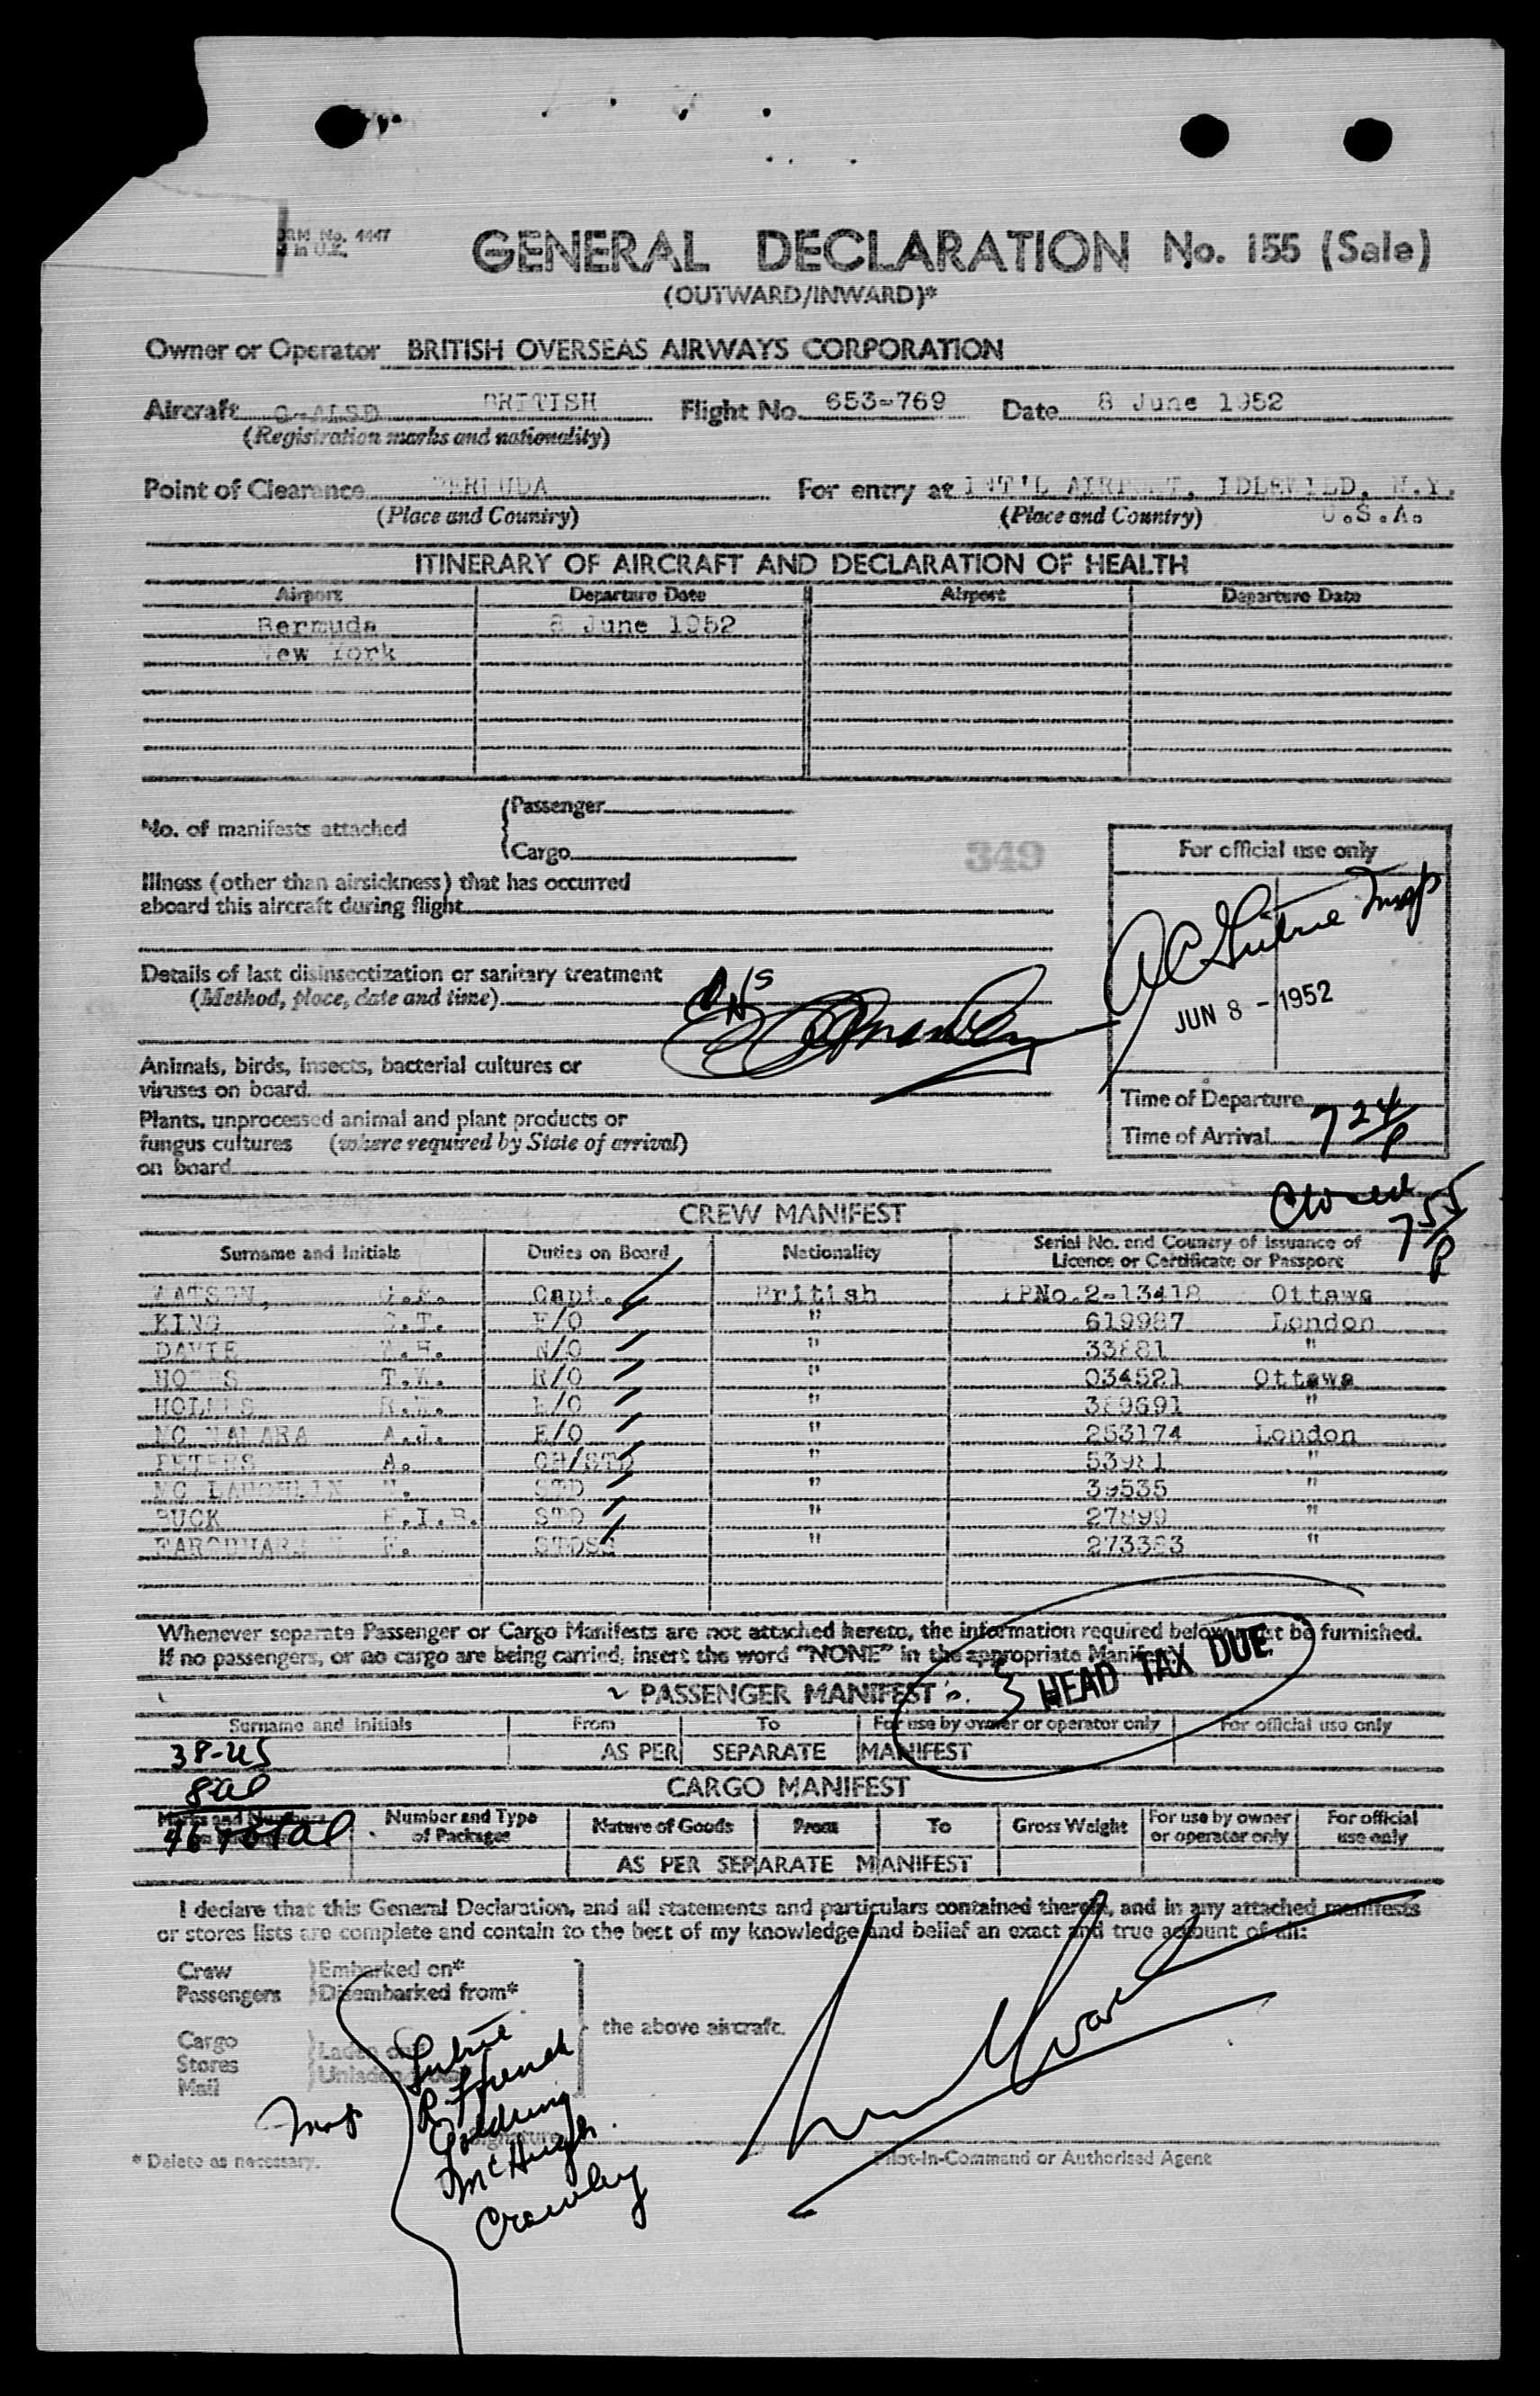 RM No. 4447
in U.K.
GENERAL DECLARATION No. 155 (Sale)
(OUTWARD/INWARD)*
Owner or Operator BRITISH OVERSEAS AIRWAYS CORPORATION
Aircraft G-ALSD BRITISH Flight No. 653-769 Date 8 June 1952
(Registration marks and nationality)
Point of Clearance BERMUDA For entry at INT'L AIRPORT, IDLEWILD, N.Y.
(Place and Country) (Place and Country) U.S.A.
ITINERARY OF AIRCRAFT AND DECLARATION OF HEALTH
Airport Departure Date Airport Departure Date
Bermuda 8 June 1952
New York
No. of manifests attached
Passenger
Cargo
349
For official use only
Illness (other than airsickness) that has occurred
aboard this aircraft during flight
Details of last disinsectization or sanitary treatment
(Method, place, date and time)
JUN 8 - 1952
Animals, birds, insects, bacterial cultures or
viruses on board
Plants, unprocessed animal and plant products or
fungus cultures (where required by State of arrival)
on board
Time of Departure
Time of Arrival 7 24/P
Closed 7 55/P
CREW MANIFEST
Surname and Initials Duties on Board Nationality Serial No. and Country of Issuance of
Licence or Certificate or Passport
WATSON, Capt. British PPNo.2-13418 Ottawa
KING F/O " 619987 London
DAVIE N/O " 33881 "
T.W. R/O " 034521 Ottawa
HOLMES "
MC NAMARA A.J. E/O " 253174 London
PETERS A. CH/STD " "
MC LAUGHLIN STD " 39535 "
BUCK STD " 27899 "
STDSS " 273383 "
Whenever separate Passenger or Cargo Manifests are not attached hereto, the information required below must be furnished.
If no passengers, or no cargo are being carried, insert the word "NONE" in the appropriate Manifest.
PASSENGER MANIFEST
3 HEAD TAX DUE
Surname and Initials From To For use by owner or operator only For official use only
38-US
AS PER SEPARATE MANIFEST
8 al
CARGO MANIFEST
Marks and Numbers Number and Type of Packages Nature of Goods From To Gross Weight For use by owner or operator only For official use only
46 total
AS PER SEPARATE MANIFEST
I declare that this General Declaration, and all statements and particulars contained therein, and in any attached manifests
or stores lists are complete and contain to the best of my knowledge and belief an exact and true account of all:
Crew Embarked on*
Passengers Disembarked from*
the above aircraft.
Cargo
Stores Laden on*
Mail Unladen from*
Insp
Guthrie
R. Ffrench
Goldring
McHugh
Crowley
Signature
* Delete as necessary.
Pilot-in-Command or Authorised Agent